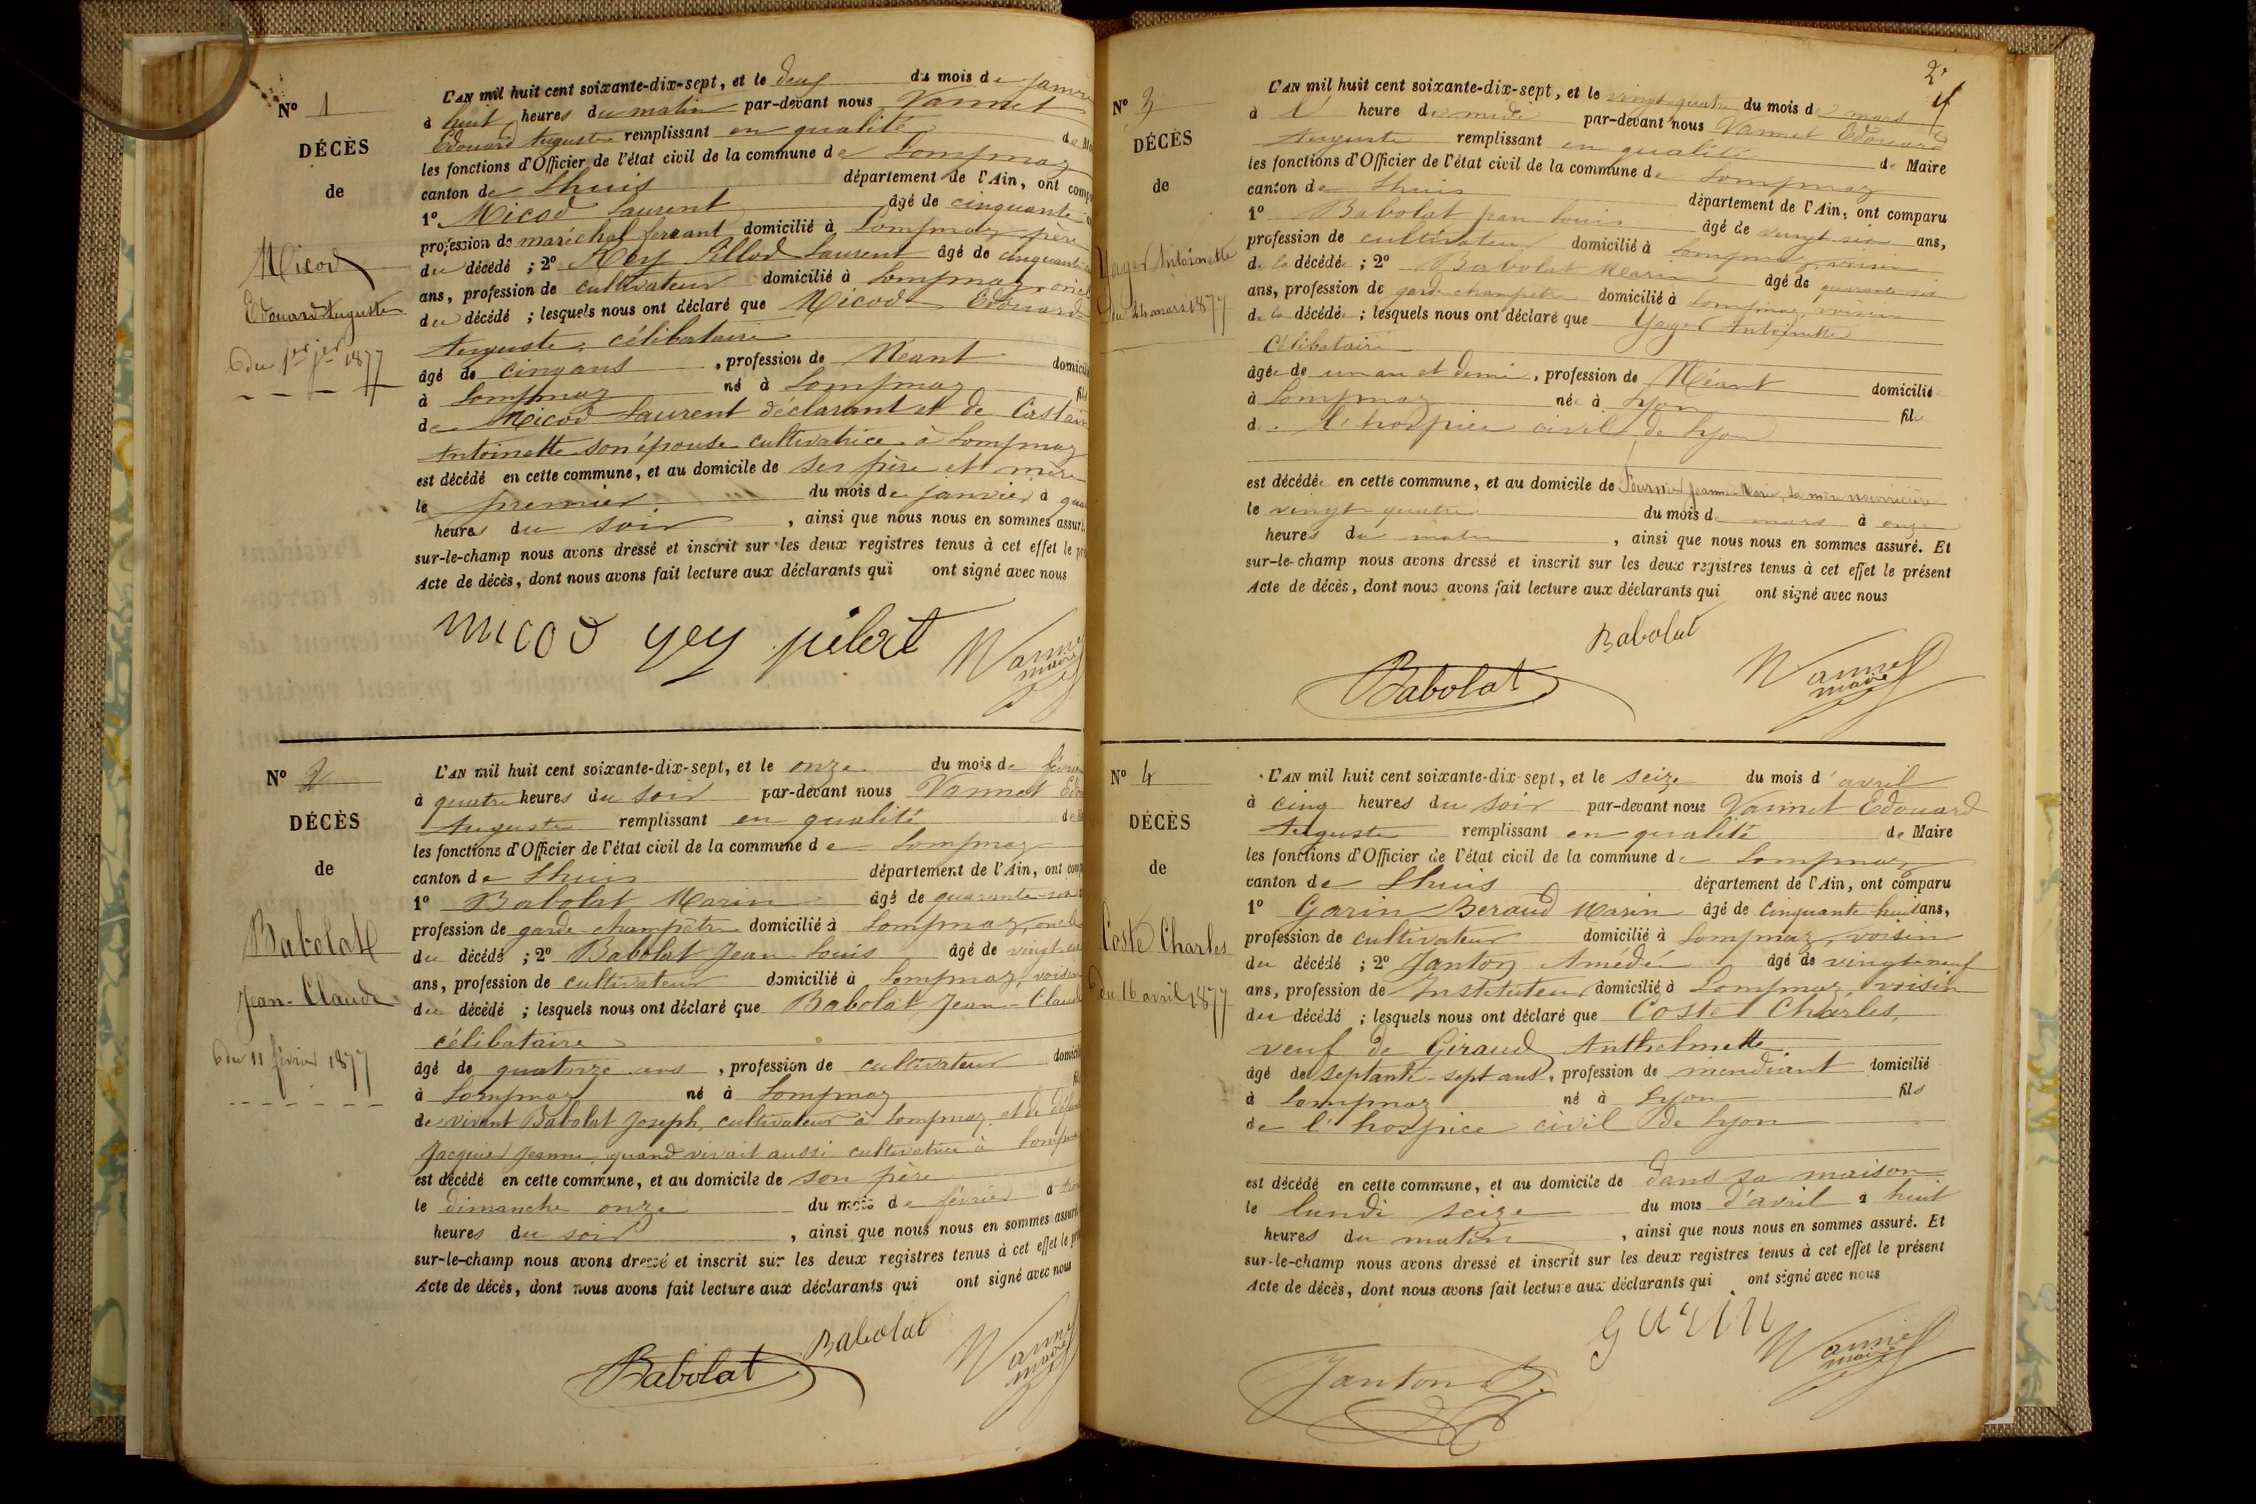 Nº 1
DÉCÈS
de
Micod
Edouard Auguste
du 1er jer 1877
L'AN mil huit cent soixante-dix-sept, et le deux du mois de janvi
à huit heures du matin par-devant nous Vannet
Edouard Auguste remplissant en qualité de
les fonctions d'Officier de l'état civil de la commune de Lompnaz
canton de Lhuis département de l'Ain, ont comp
1º Micod Laurent âgé de cinquante
profession de maréchal ferrant domicilié à Lompnaz père
du décédé ; 2º Rey Laurent âgé de cinquante
ans, profession de cultivateur domicilié à Lompnaz oncl
du décédé ; lesquels nous ont déclaré que Micod Edouard
Auguste, célibataire
âgé de cinq ans, profession de Néant domicili
à Lompnaz né à Lompnaz fil
de Micod Laurent déclarant et de
Antoinette son épouse cultivatrice à Lompnaz
est décédé en cette commune, et au domicile de ses père et mère
le premier du mois de janvier à qua
heures du soir, ainsi que nous nous en sommes assur
sur-le-champ nous avons dressé et inscrit sur les deux registres tenus à cet effet le pr
Acte de décès, dont nous avons fait lecture aux déclarants qui ont signé avec nous
micod
Vannet
maire
Nº 2
DÉCÈS
de
Babolat
Jean-Claude
du 11 février 1877
L'AN mil huit cent soixante-dix-sept, et le onze du mois de févri
à quatre heures du soir par-devant nous Vannet Edo
Auguste remplissant en qualité de
les fonctions d'Officier de l'état civil de la commune de Lompnaz
canton de Lhuis département de l'Ain, ont comp
1º Babolat Marin âgé de quarante-six
profession de garde champêtre domicilié à Lompnaz, oncle
du décédé ; 2º Babolat Jean Louis âgé de vingt-six
ans, profession de cultivateur domicilié à Lompnaz, voisin
du décédé ; lesquels nous ont déclaré que Babolat Jean-Claud
célibataire
âgé de quatorze ans, profession de cultivateur domicili
à Lompnaz né à Lompnaz fil
de vivant Babolat Joseph, cultivateur à Lompnaz et de défun
Jacquier Jeanne, quand vivait aussi cultivatrice à Lompn
est décédé en cette commune, et au domicile de son père
le dimanche onze du mois de février à
heures du soir, ainsi que nous nous en sommes assur
sur-le-champ nous avons dressé et inscrit sur les deux registres tenus à cet effet le pr
Acte de décès, dont nous avons fait lecture aux déclarants qui ont signé avec nous
Babolat
Babolat
Vannet
maire
2e
Nº 3
DÉCÈS
de
Yager Antoinette
du 24 mars 1877
L'AN mil huit cent soixante-dix-sept, et le vingt-quatre du mois de mars
à l' heure de midi par-devant nous Vannet Edouard
Auguste remplissant en qualité de Maire
les fonctions d'Officier de l'état civil de la commune de Lompnaz
canton de Lhuis département de l'Ain, ont comparu
1º Babolat jean louis âgé de vingt six ans,
profession de cultivateur domicilié à Lompnaz, voisin
de la décédée ; 2º Babolat Marin âgé de quarante six
ans, profession de garde champêtre domicilié à Lompnaz, voisin
de la décédée ; lesquels nous ont déclaré que Yager Antoinette
Célibataire
âgée de un an et demi, profession de Néant domicilié
à Lompnaz née à Lyon fille
de l'hospice civil de Lyon
est décédée en cette commune, et au domicile de Jeanne Marie, sa mère nourricière
le vingt-quatre du mois de mars à onze
heures du matin, ainsi que nous nous en sommes assuré. Et
sur-le-champ nous avons dressé et inscrit sur les deux registres tenus à cet effet le présent
Acte de décès, dont nous avons fait lecture aux déclarants qui ont signé avec nous
Babolat
Babolat
Vannet
maire
Nº 4
DÉCÈS
de
Coste Charles
du 16 avril 1877
L'AN mil huit cent soixante-dix-sept, et le seize du mois d'avril
à cinq heures du soir par-devant nous Vannet Edouard
Auguste remplissant en qualité de Maire
les fonctions d'Officier de l'état civil de la commune de Lompnaz
canton de Lhuis département de l'Ain, ont comparu
1º Garin Beraud Marin âgé de cinquante huit ans,
profession de cultivateur domicilié à Lompnaz, voisin
du décédé ; 2º Janton Amédé âgé de vingt-neuf
ans, profession de Instituteur domicilié à Lompnaz, voisin
du décédé ; lesquels nous ont déclaré que Coste Charles,
veuf de Giraud Anthelmette
âgé de septante-sept ans, profession de mendiant domicilié
à Lompnaz né à Lyon fils
de l'hospice civil de Lyon
est décédé en cette commune, et au domicile de dans sa maison
le lundi seize du mois d'avril à huit
heures du matin, ainsi que nous nous en sommes assuré. Et
sur-le-champ nous avons dressé et inscrit sur les deux registres tenus à cet effet le présent
Acte de décès, dont nous avons fait lecture aux déclarants qui ont signé avec nous
Garin
Janton
Vannet
maire